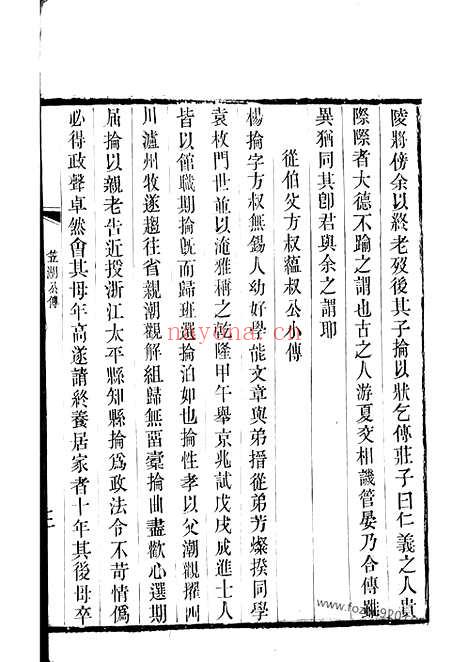 陵將傍余以終老歿後其子掄以狀乞傳莊子曰仁義之人貴
際際者大德不踰之謂也古之人游夏交相譏管晏乃合傳雖
異猶同其卽君與余之謂耶
從伯父方叔蘊叔公小傳
楊掄字方叔無錫人幼好學能文章與弟搢從弟芳燦揆同學
袁枚門世並以淹雅稱之乾隆甲午舉京兆試戊戌成進士人
皆以館職期掄旣而歸班選掄泊如也掄性孝以父潮觀擢四
川瀘州牧遂趨往省親潮觀解組歸無畱橐掄曲盡歡心選期
屆掄以親老告近授浙江太平縣知縣掄爲政法令不苛情僞
必得政聲卓然會其母年高遂請終養居家者十年其後母卒
笠湖公傳
三
nayona.cn